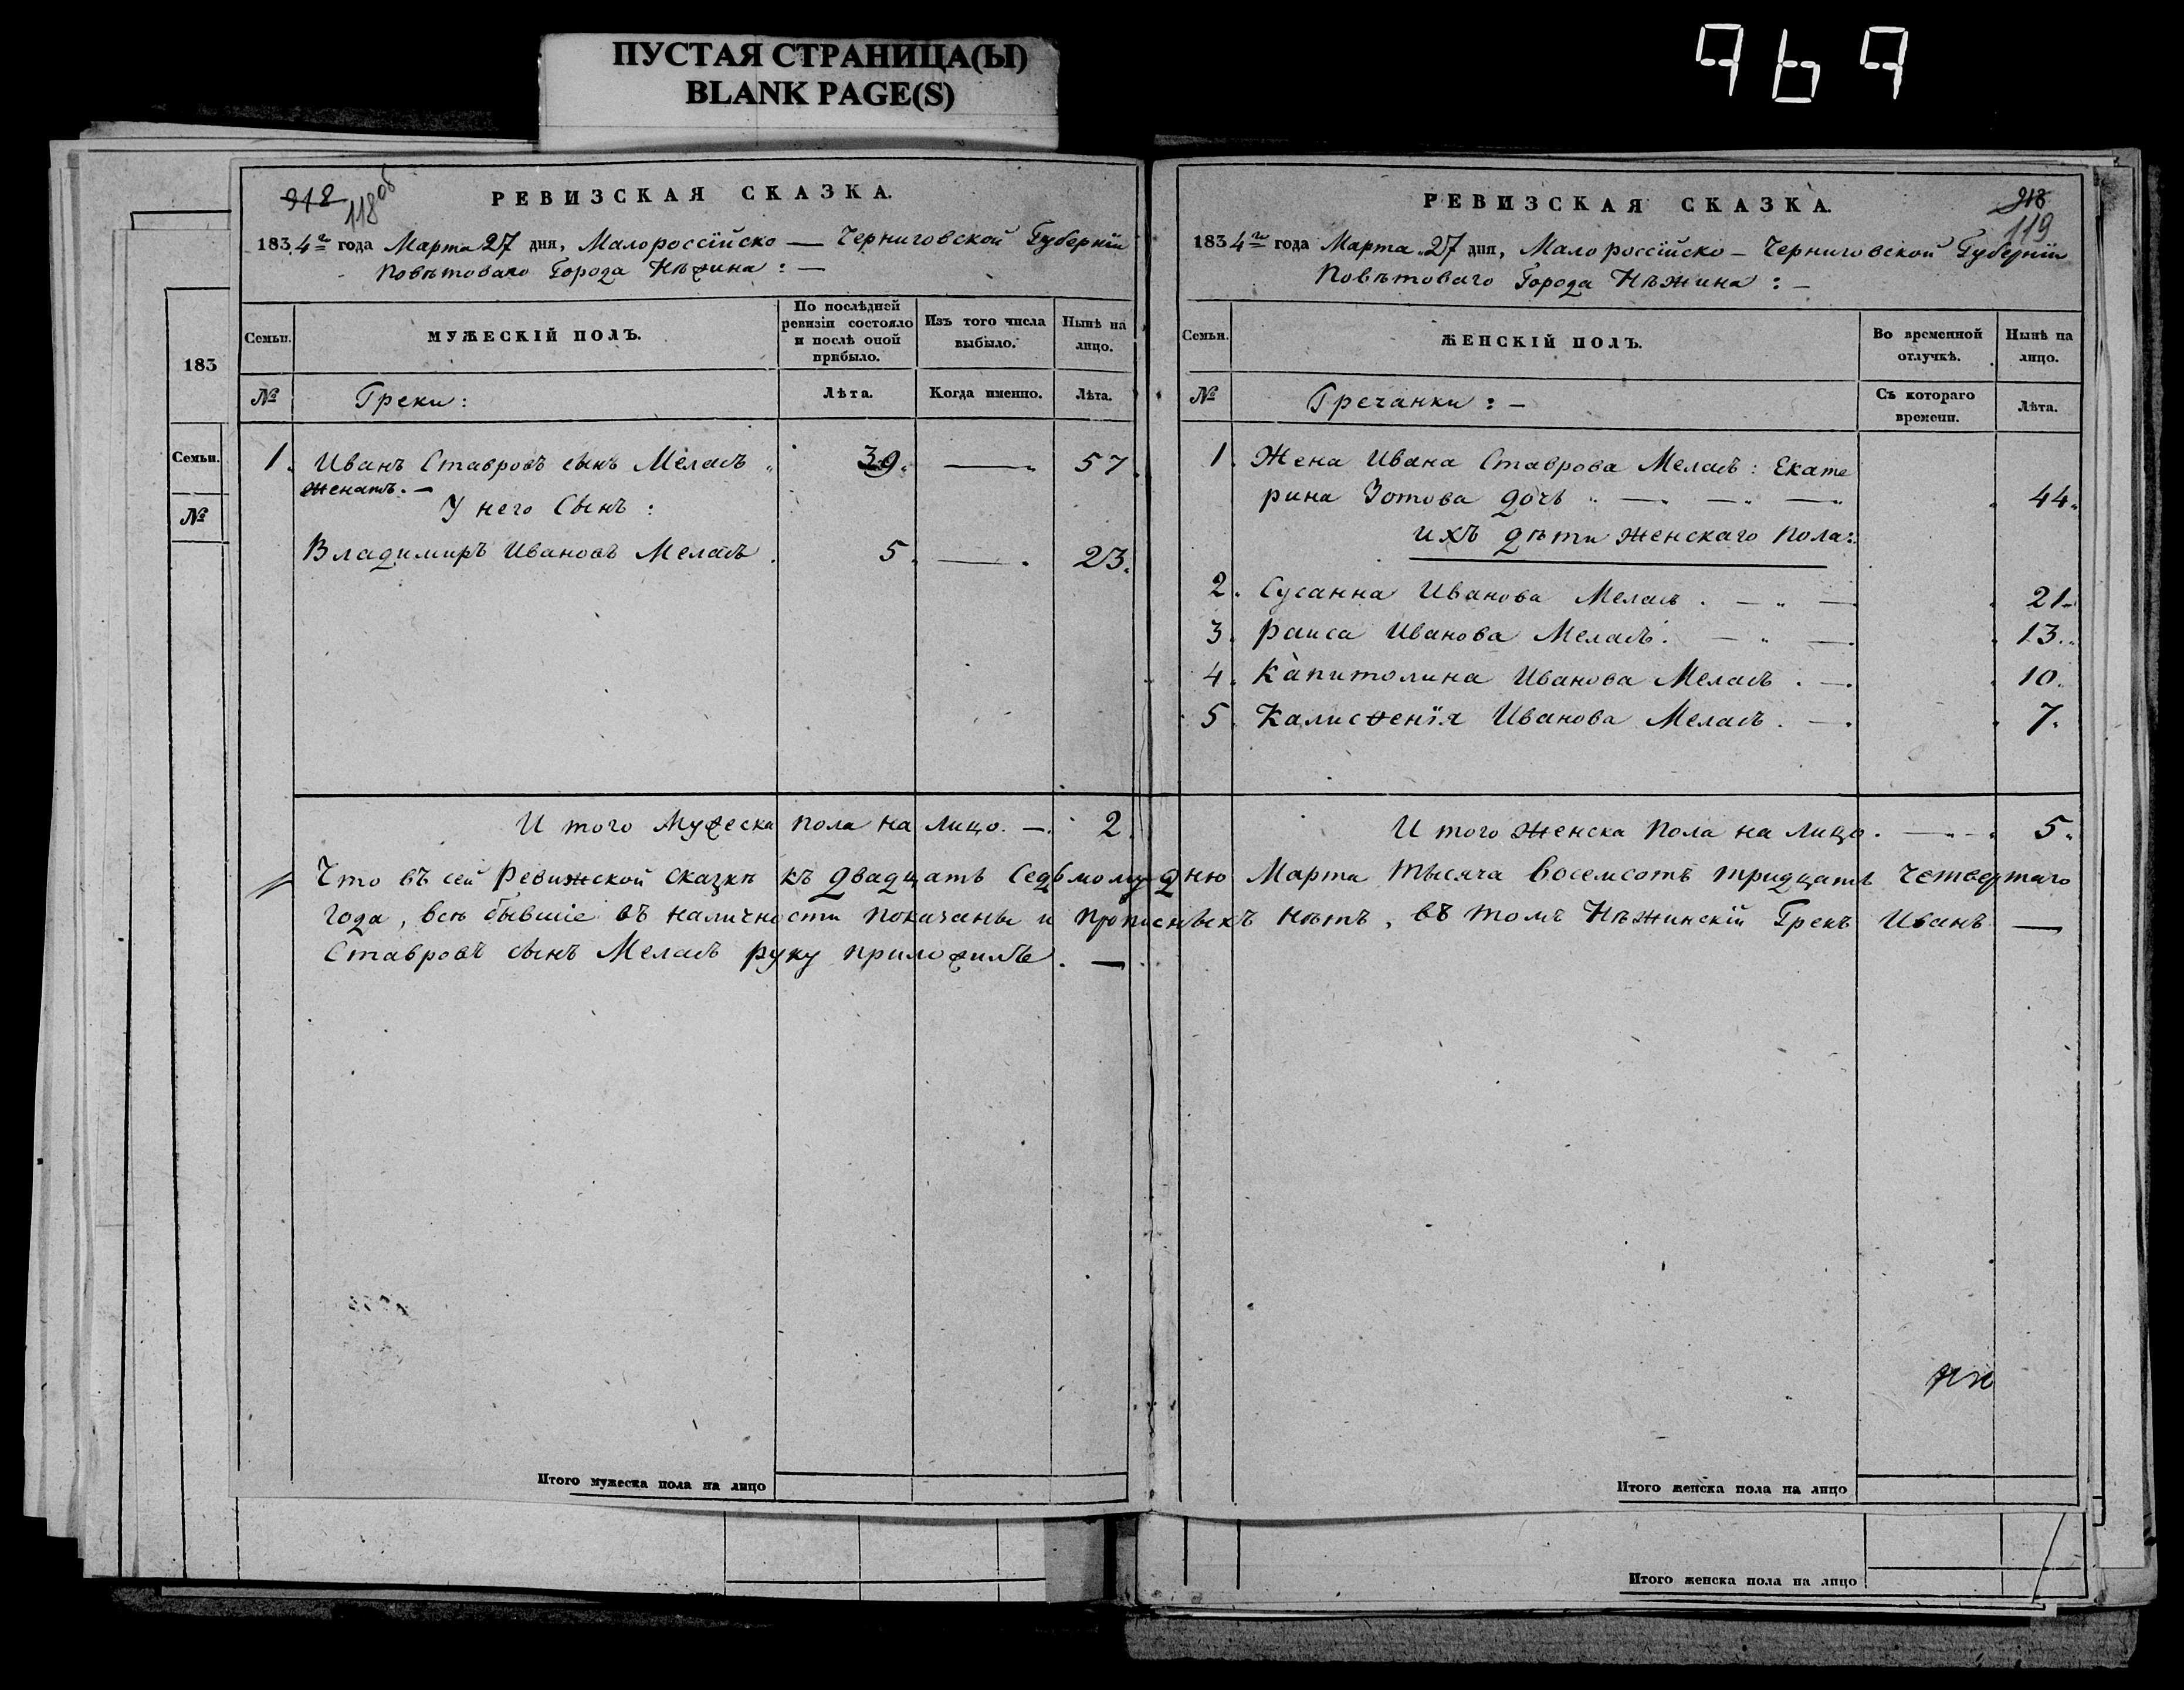 ПУСТАЯ СТРАНИЦА(Ы)
BLANK PAGE(S)
969
183
Семьи.
№
912
118 об
РЕВИЗСКАЯ СКАЗКА.
1834го года Марта 27 дня, Малороссійско — Черниговской Губерніи
Повѣтоваго Города Нѣжина: —
Семьи.
МУЖЕСКІЙ ПОЛЪ.
По послѣдней ревизіи состояло и послѣ оной прибыло.
Изъ того числа выбыло.
Нынѣ на лицо.
№
Греки:
Лѣта.
Когда именно.
Лѣта.
1. Иванъ Ставровъ сынъ Меласъ 39. — 57.
женатъ. —
У него Сынъ:
Владимиръ Ивановъ Меласъ. 5. — 23.
И того Мужеска пола на лицо. — 2.
РЕВИЗСКАЯ СКАЗКА.
913
119
1834го года Марта 27 дня, Малороссійско – Черниговской Губерніи
Повѣтоваго Города Нѣжина: –
Семьи.
ЖЕНСКІЙ ПОЛЪ.
Во временной отлучкѣ.
Нынѣ на лицо.
№
Гречанки: –
Съ котораго времени.
Лѣта.
1. Жена Ивана Ставрова Меласъ: Екате
рина Зотова дочь — — — 44.
ихъ дѣти женскаго пола:
2. Сусанна Иванова Меласъ. — — 21.
3. Раиса Иванова Меласъ. — — 13.
4. Капитолина Иванова Меласъ. — 10.
5. Калисѳенія Иванова Меласъ. — 7.
И того женска пола на лицо. — 5.
Что въ сей Ревижской сказкѣ къ двадцать Седьмому дню Марта тысяча восемсотъ тридцать четвертаго
года, всѣ бывшіе въ наличности показаны и прописныхъ нѣтъ, въ томъ Нѣжинскій Грекъ Иванъ —
Ставровъ сынъ Меласъ руку приложилъ. —
Итого мужеска пола на лицо
Итого женска пола на лицо
Итого женска пола на лицо